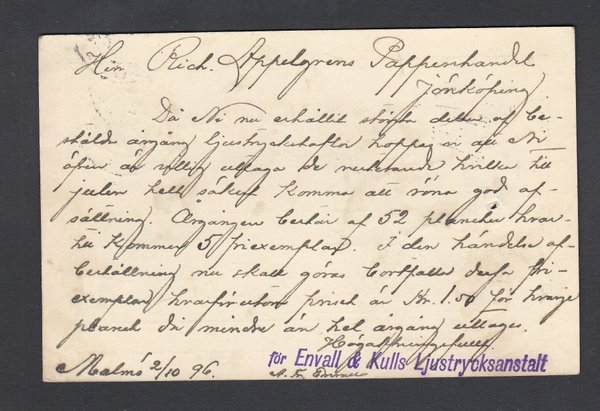 Herr Rich. Appelgrens Pappershandel
Jönköping
Då Ni nu erhållit största delen af be-
stälda årgång ljustryckstaflor hoppas vi att Ni
äfven är villig uttaga de resterande hvilka till
julen helt säkert komma att röna god af-
sättning. Årgången består af 52 plancher hvar-
till kommer 5 friexemplar. I den händelse af-
beställning nu skall göras bortfalla dessa fri-
exemplar hvarförutom priset är Kr. 1.50 för hvarje
planch då mindre än hel årgång uttages.
Högaktningsfullt
för Envall & Kulls Ljustrycksanstalt
Malmö 2/10 96.